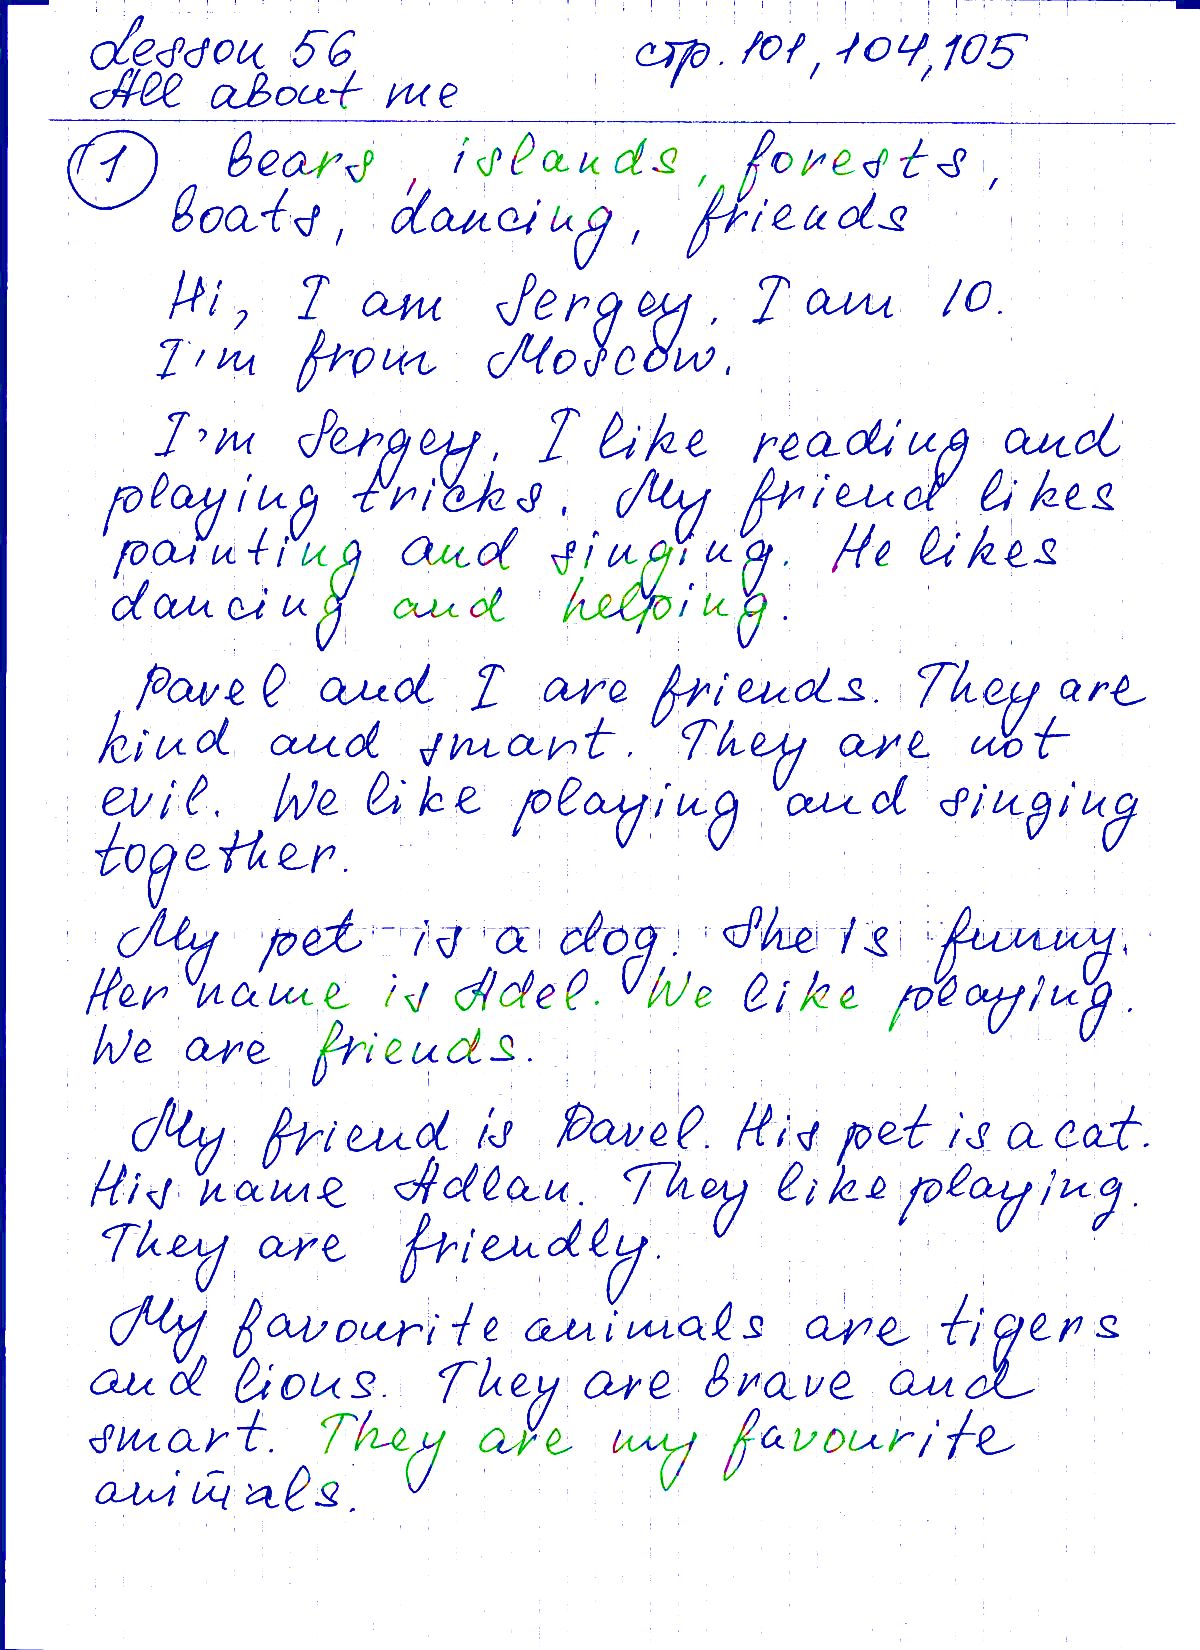 Lesson 56 стр. 101, 104, 105
All about me
1 bears, islands, forests,
boats, dancing, friends
Hi, I am Sergey. I am 10.
I'm from Moscow.
I'm Sergey. I like reading and
playing tricks. My friend likes
painting and singing. He likes
dancing and helping.
Pavel and I are friends. They are
kind and smart. They are not
evil. We like playing and singing
together.
My pet is a dog. She is funny.
Her name is Adel. We like playing.
We are friends.
My friend is Pavel. His pet is a cat.
His name Adlan. They like playing.
They are friendly.
My favourite animals are tigers
and lions. They are brave and
smart. They are my favourite
animals.